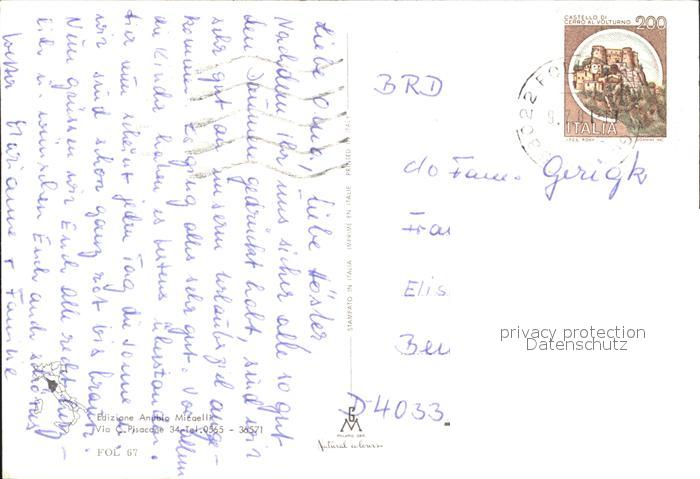 Liebe Oma, liebe
Nachdem ihr uns sicher alle so gut
den Daumen gedrückt habt, sind wir
sehr gut an unserem Urlaubsziel ange-
kommen. Es ging alles sehr gut. Vor allem
die Kinder haben es bestens überstanden.
Hier nun scheint jeden Tag die Sonne u.
wir sind schon ganz rot bis braun.
Nun grüssen wir Euch alle recht herz-
lich u. wünschen Euch auch
Marianne + Familie
Edizione Angelo Micaelli
Via C. Pisacane 34 Tel. 0565 - 36571
FOL 67
STAMPATO IN ITALIA IMPRIMÉ EN ITALIE PRINTED IN
GM
MILANO
Natural colours
CASTELLO DI
CERRO AL VOLTURNO 200
ITALIA
I.P.Z.S. ROMA
BRD
Fam. Gerigk
Elis
D-4033
privacy protection
Datenschutz